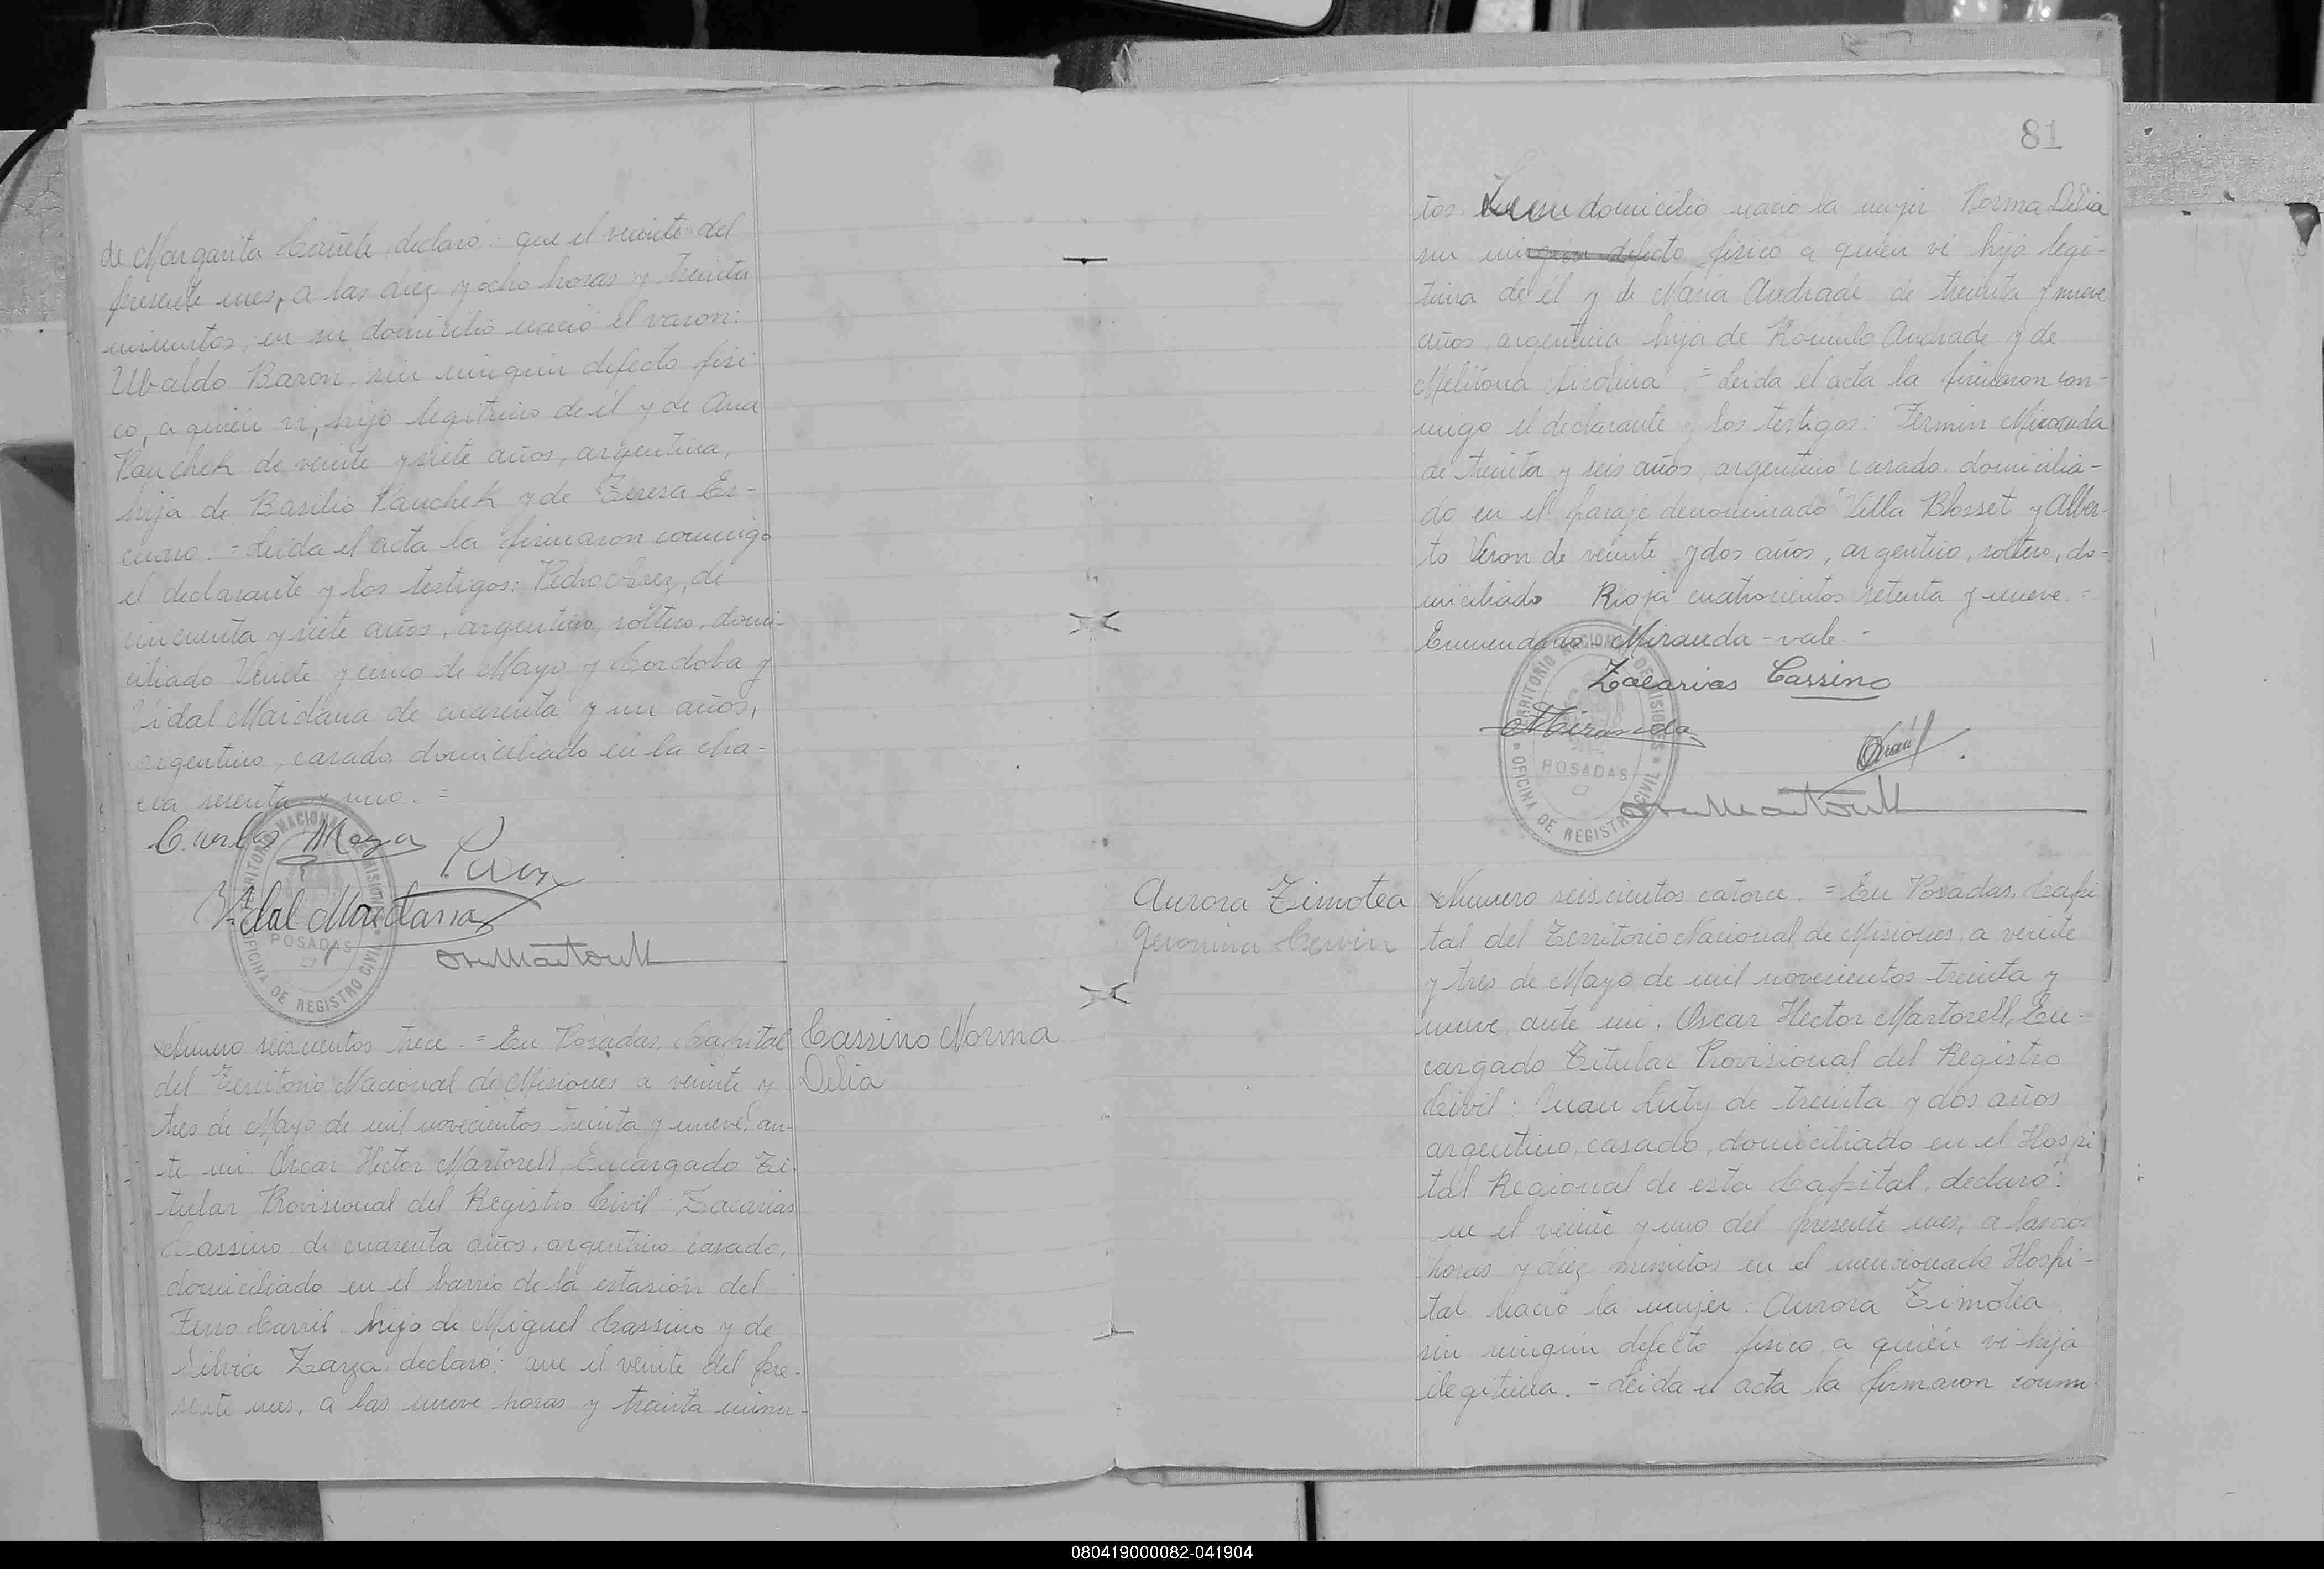 de Margarita Cañete, declaró: que el veinte del
presente mes, a las diez y ocho horas y treinta
minutos, en su domicilio nació el varon:
Ubaldo Baron, sin ningún defecto fisi-
co, a quién vi, hijo legitimo de él y de Ana
Panchek de veinte y siete años, argentina,
hija de Basilio Panchek y de Teresa
. = Leida el acta la firmaron conmigo
el declarante y los testigos: Pedro de
cincuenta y siete años, argentino, soltero, domi-
ciliado Veinte y cinco de Mayo y Cordoba y
Vidal Maidana de cuarenta y un años,
argentino, casado, domiciliado en la cha-
cra sesenta y uno. =
Carlos Meza
Vidal Maidana
TERRITORIO NACIONAL DE MISIONES
POSADAS
OFICINA DE REGISTRO CIVIL
Numero seiscientos trece. = En Posadas, Capital
del Territorio Nacional de Misiones a veinte y
tres de Mayo de mil novecientos treinta y nueve, an-
te mi Oscar Hector Martorell, Encargado Ti-
tular Provisional del Registro Civil: Zacarias
Cassino de cuarenta años, argentino casado,
domiciliado en el barrio de la estasión del
Ferro Carril, hijo de Miguel Cassino y de
Silvia Zarza, declaró: que el veinte del pre-
sente mes, a las nueve horas y treinta minu-
Cassino Norma
Delia
81
tos, en su domicilio nacio la mujer Norma Delia
sin ningún defecto fisico a quien vi hija legi-
tima de él y de Maria Andrade de treinta y nueve
años, argentina hija de Romulo Andrade y de
Melitona Nicolina = Leida el acta la firmaron con-
migo el declarante y los testigos: Fermin Miranda
de treinta y seis años, argentino casado, domicilia-
do en el paraje denominado Villa Blosset y Alber-
to Veron de veinte y dos años, argentino, soltero, do-
miciliado Rioja cuatrocientos setenta y nueve. =
Enmendado Miranda - vale. -
Zacarias Cassino
Miranda
TERRITORIO NACIONAL DE MISIONES
POSADAS
OFICINA DE REGISTRO CIVIL
Aurora Timotea
Geronima
Numero seiscientos catorce. = En Posadas, Capi
tal del Territorio Nacional de Misiones, a veinte
y tres de Mayo de mil novecientos treinta y
nueve, ante mi, Oscar Hector Martorell, En-
cargado Titular Provisional del Registro
Civil: Juan Luty de treinta y dos años
argentino, casado, domiciliado en el Hospi
tal Regional de esta Capital, declaró:
ue el veinte y uno del presente mes, a las dos
horas y diez minutos en el mencionado Hospi-
tal nació la mujer: Aurora Timotea
sin ningún defecto fisico, a quién vi hija
ilegitima. - Leida el acta la firmaron conmi
080419000082-041904